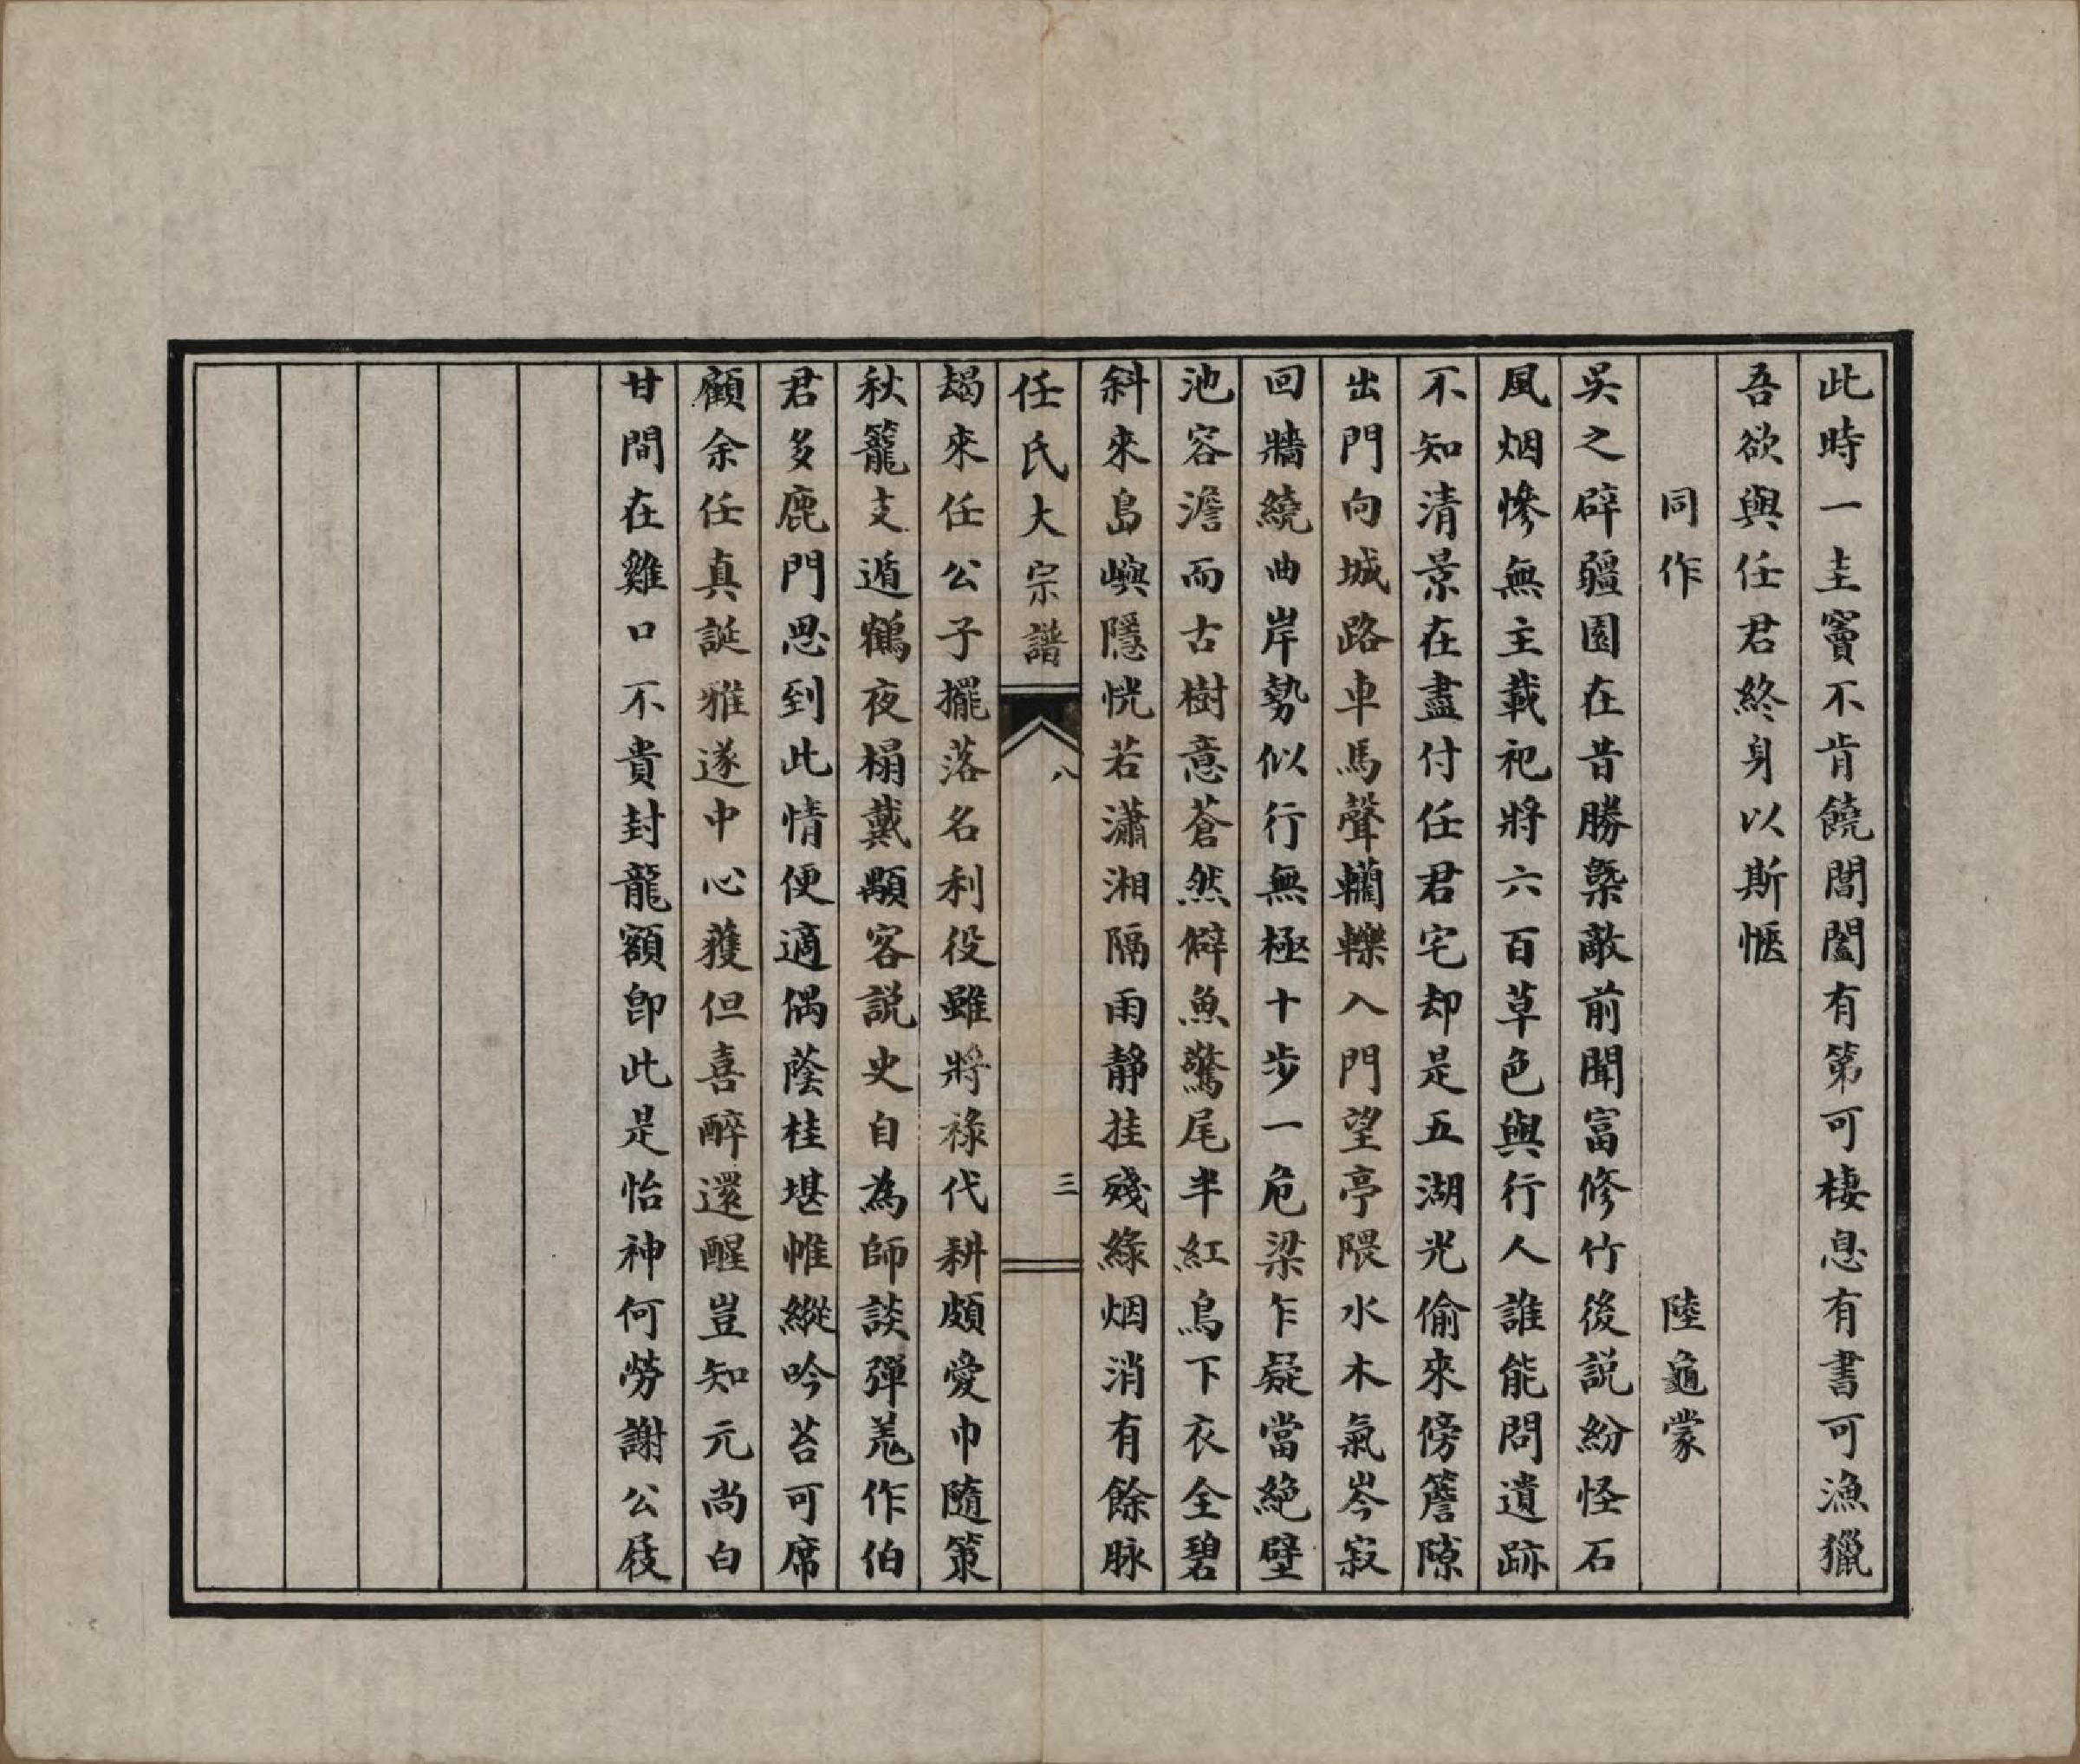 此時一圭竇不肯饒閶闔有第可棲息有書可漁獵
吾欲與任君終身以斯愜
同作 陸龜蒙
吳之辟疆園在昔勝槩敵前聞富修竹後説紛怪石
風烟慘無主載祀將六百草色與行人誰能問遺跡
不知清景在盡付任君宅却是五湖光偷來傍簷隙
出門向城路車馬聲轥轢入門望亭隈水木氣岑寂
回牆繞曲岸勢似行無極十步一危梁乍疑當絶壁
池容澹而古樹意蒼然僻魚驚尾半紅鳥下衣全碧
斜來島嶼隱恍若瀟湘隔雨靜挂殘綠烟消有餘脉
任氏大宗譜 八 三
朅來任公子擺落名利役雖將祿代耕頗愛巾隨策
秋籠支遁鶴夜榻戴顒客説史自為師談彈羗作伯
君多鹿門思到此情便適偶蔭桂堪帷縱吟苔可席
顧余任真誕雅遂中心獲但喜醉還醒豈知元尚白
甘間在雞口不貴封龍額卽此是怡神何勞謝公屐